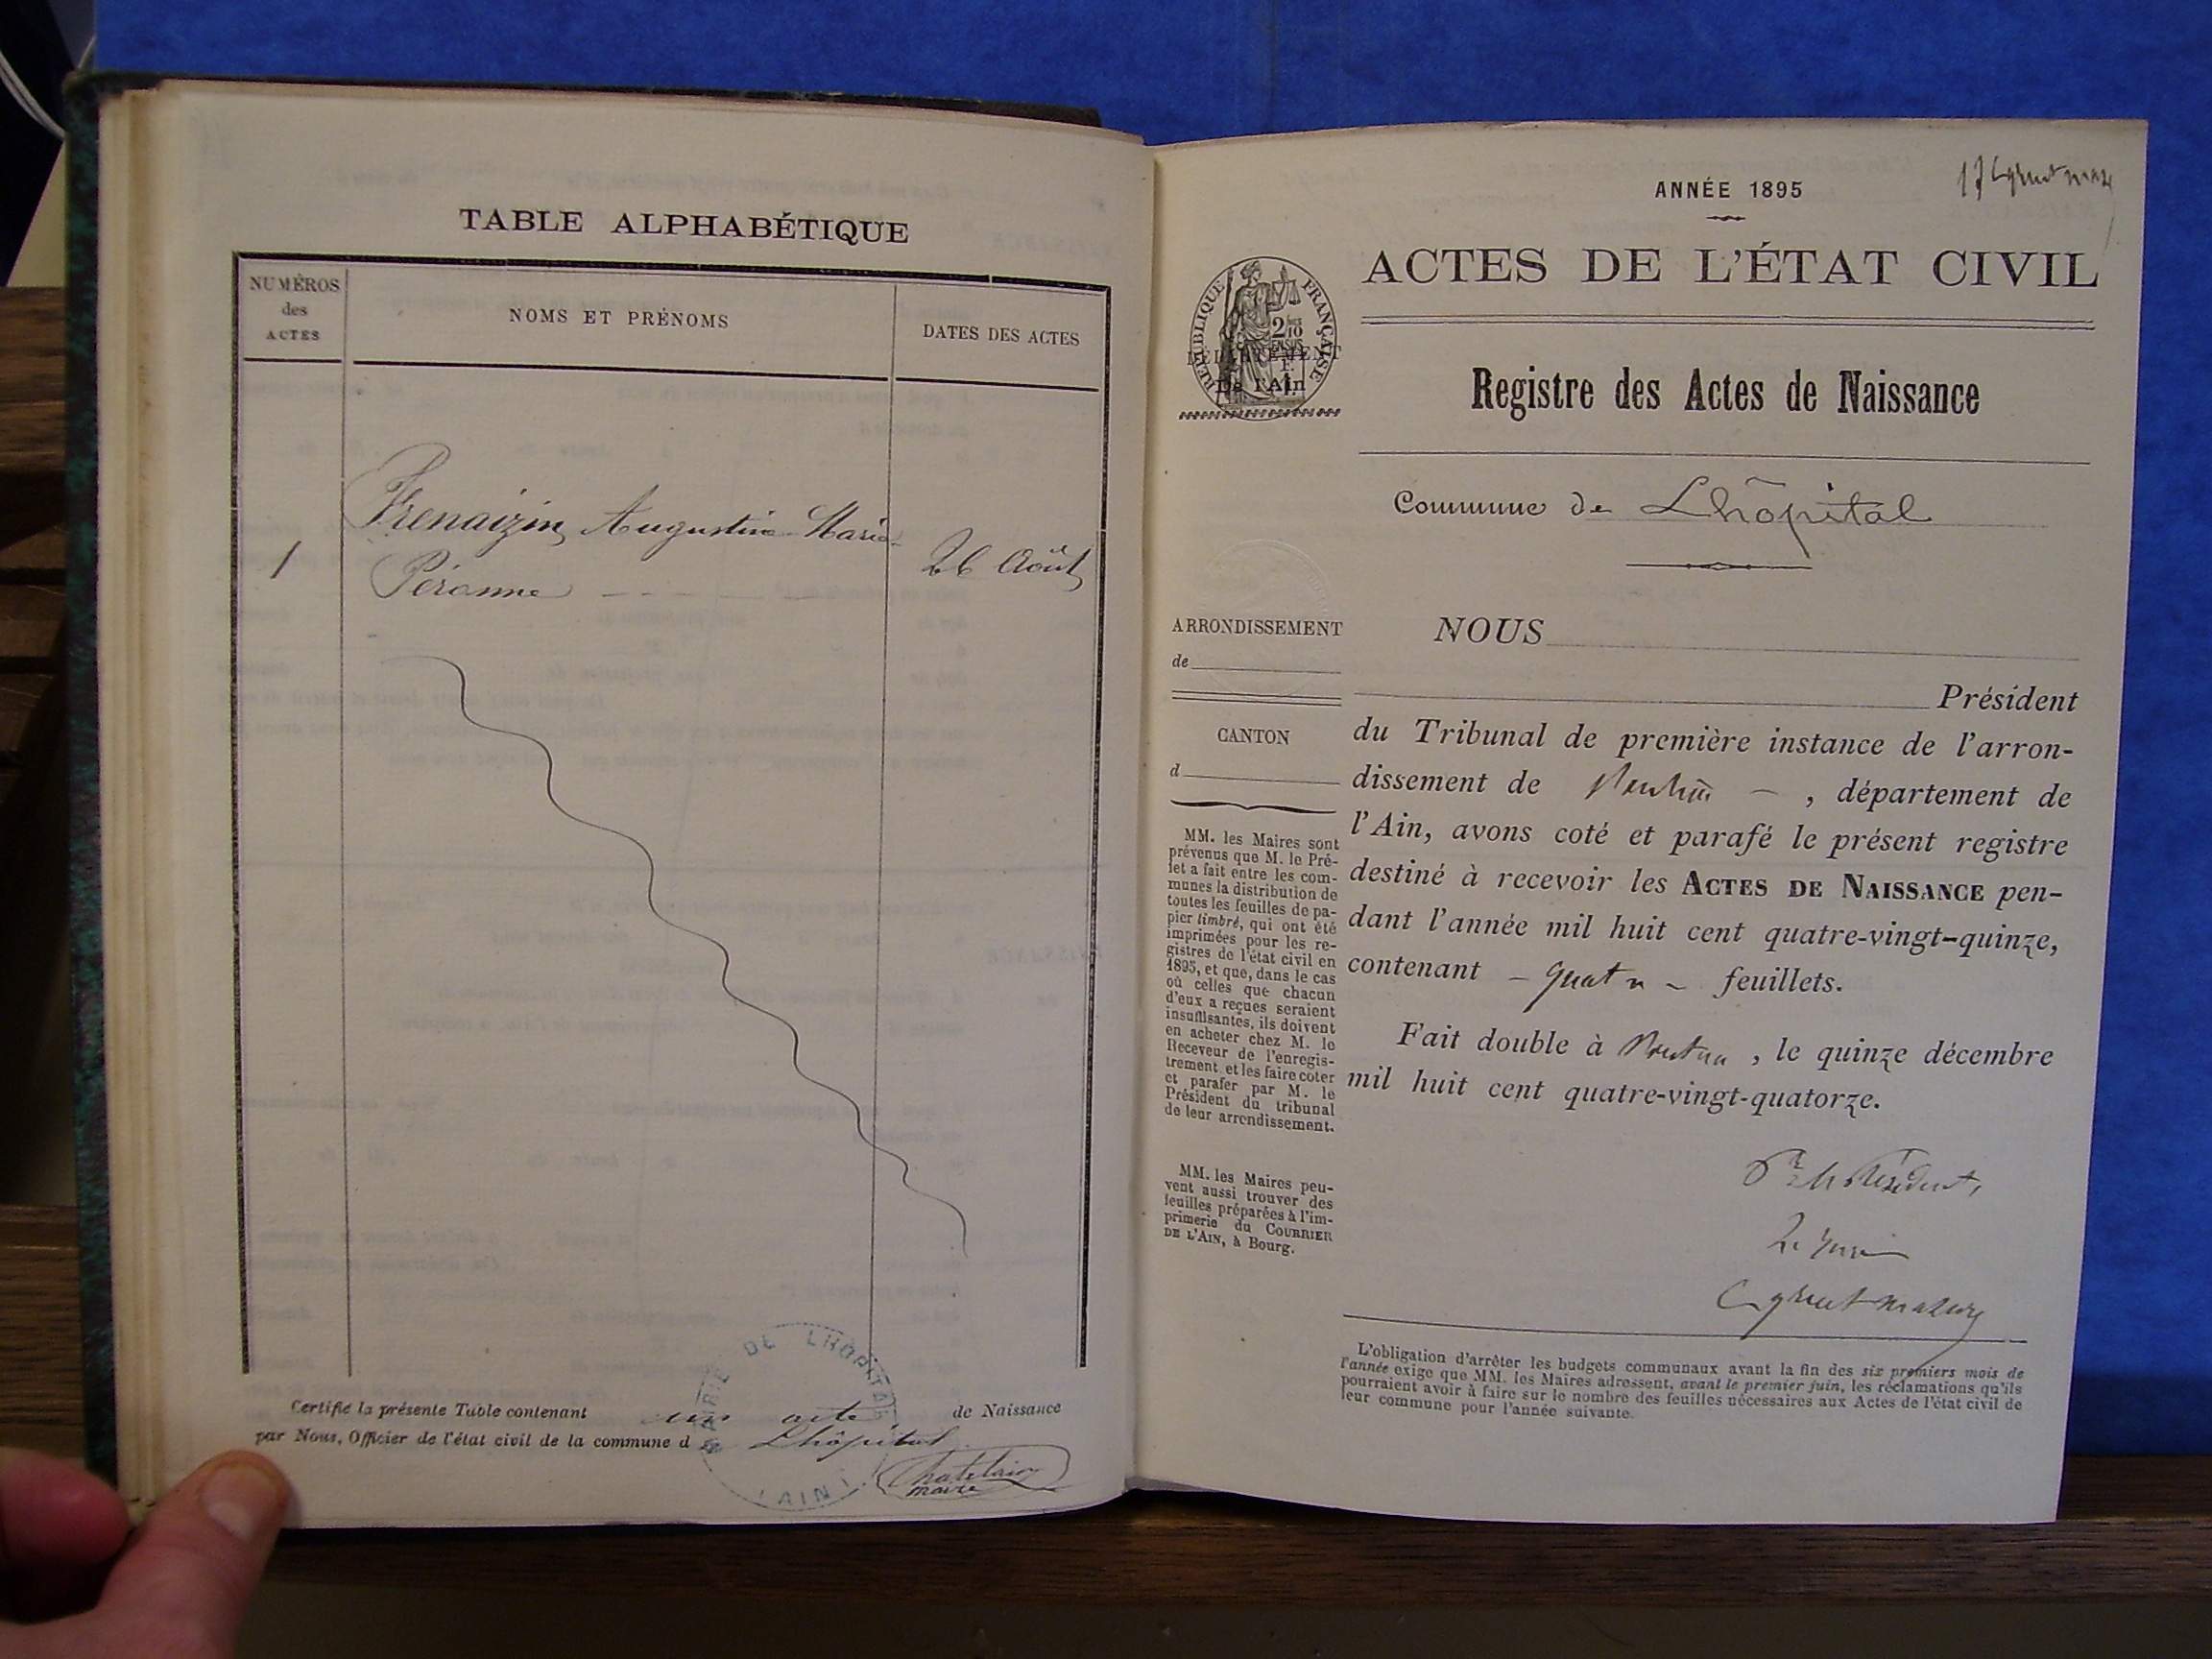 TABLE ALPHABÉTIQUE
NUMÉROS
des
ACTES
NOMS ET PRÉNOMS
DATES DES ACTES
1
Frenaizin Augustine Marie
Péronne
26 Août
Certifié la présente Table contenant un acte de Naissance
par Nous, Officier de l'état civil de la commune d Lhôpital
MAIRIE DE LHÔPITAL
(AIN)
Chatelain
maire
ANNÉE 1895
ACTES DE L'ÉTAT CIVIL
RÉPUBLIQUE FRANÇAISE
DÉPARTEMENT
De l'Ain
Registre des Actes de Naissance
Commune de Lhôpital
ARRONDISSEMENT
de
CANTON
d
MM. les Maires sont
prévenus que M. le Pré-
fet a fait entre les com-
munes la distribution de
toutes les feuilles de pa-
pier timbré, qui ont été
imprimées pour les re-
gistres de l'état civil en
1895, et que, dans le cas
où celles que chacun
d'eux a reçues seraient
insuffisantes, ils doivent
en acheter chez M. le
Receveur de l'enregis-
trement et les faire coter
et parafer par M. le
Président du tribunal
de leur arrondissement.
MM. les Maires peu-
vent aussi trouver des
feuilles préparées à l'im-
primerie du COURRIER
DE L'AIN, à Bourg.
NOUS
Président
du Tribunal de première instance de l'arron-
dissement de Nantua , département de
l'Ain, avons coté et parafé le présent registre
destiné à recevoir les ACTES DE NAISSANCE pen-
dant l'année mil huit cent quatre-vingt-quinze,
contenant - quatre - feuillets.
Fait double à Nantua , le quinze décembre
mil huit cent quatre-vingt-quatorze.
Pr le Président,
L'obligation d'arrêter les budgets communaux avant la fin des six premiers mois de
l'année exige que MM. les Maires adressent, avant le premier juin, les réclamations qu'ils
pourraient avoir à faire sur le nombre des feuilles nécessaires aux Actes de l'état civil de
leur commune pour l'année suivante.